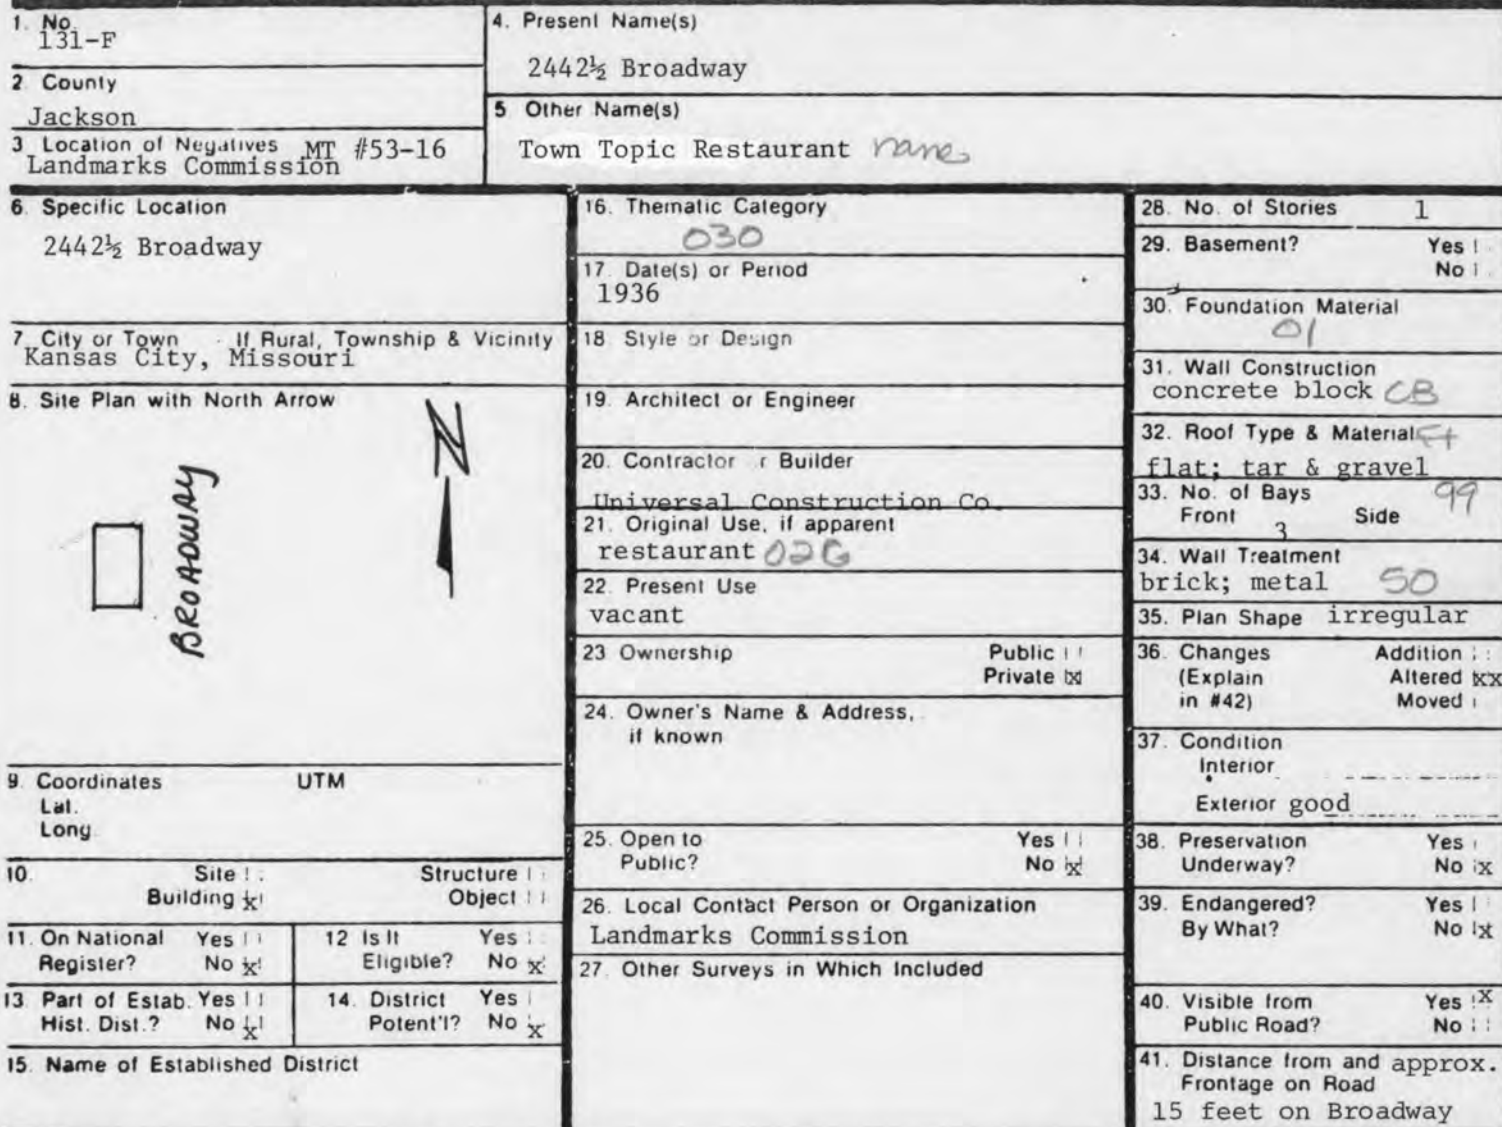 1. No.
131-F
2. County
Jackson
3 Location of Negatives MT #53-16
Landmarks Commission
4. Present Name(s)
2442½ Broadway
5 Other Name(s)
Town Topic Restaurant
6. Specific Location
2442½ Broadway
7. City or Town If Rural, Township & Vicinity
Kansas City, Missouri
8. Site Plan with North Arrow
N
BROADWAY
9. Coordinates UTM
Lat.
Long.
10. Site Structure
Building x Object
11. On National Yes
Register? No x
12 Is It Yes
Eligible? No x
13 Part of Estab. Yes
Hist. Dist.? No x
14. District Yes
Potent'l? No x
15. Name of Established District
16. Thematic Category
030
17. Date(s) or Period
1936
18 Style or Design
19. Architect or Engineer
20. Contractor r Builder
Universal Construction Co.
21. Original Use, if apparent
restaurant 02G
22. Present Use
vacant
23 Ownership Public
Private x
24. Owner's Name & Address,
if known
25. Open to Yes
Public? No x
26. Local Contact Person or Organization
Landmarks Commission
27. Other Surveys in Which Included
28. No. of Stories 1
29. Basement? Yes
No
30. Foundation Material
01
31. Wall Construction
concrete block CB
32. Roof Type & Material
flat; tar & gravel
33. No. of Bays 99
Front 3 Side
34. Wall Treatment
brick; metal 50
35. Plan Shape irregular
36. Changes Addition
(Explain Altered xx
in #42) Moved
37. Condition
Interior
Exterior good
38. Preservation Yes
Underway? No x
39. Endangered? Yes
By What? No x
40. Visible from Yes x
Public Road? No
41. Distance from and approx.
Frontage on Road
15 feet on Broadway